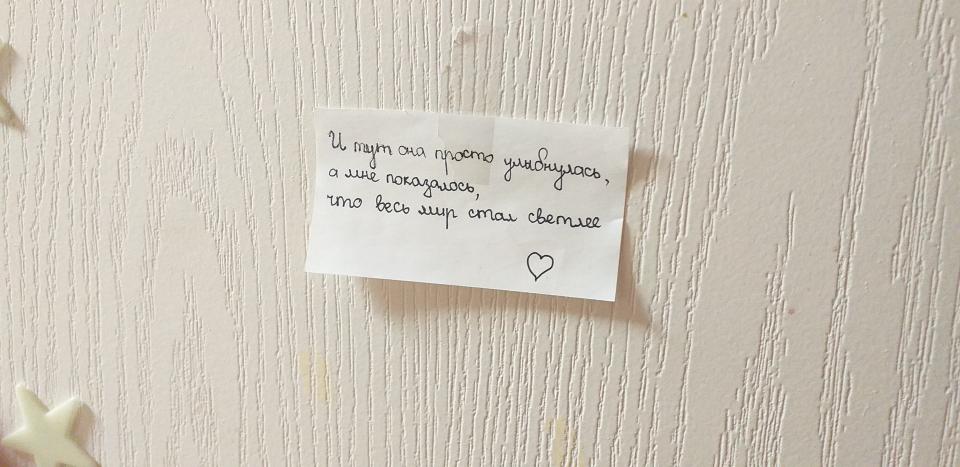 И тут она просто улыбнулась,
а мне показалось,
что весь мир стал светлее